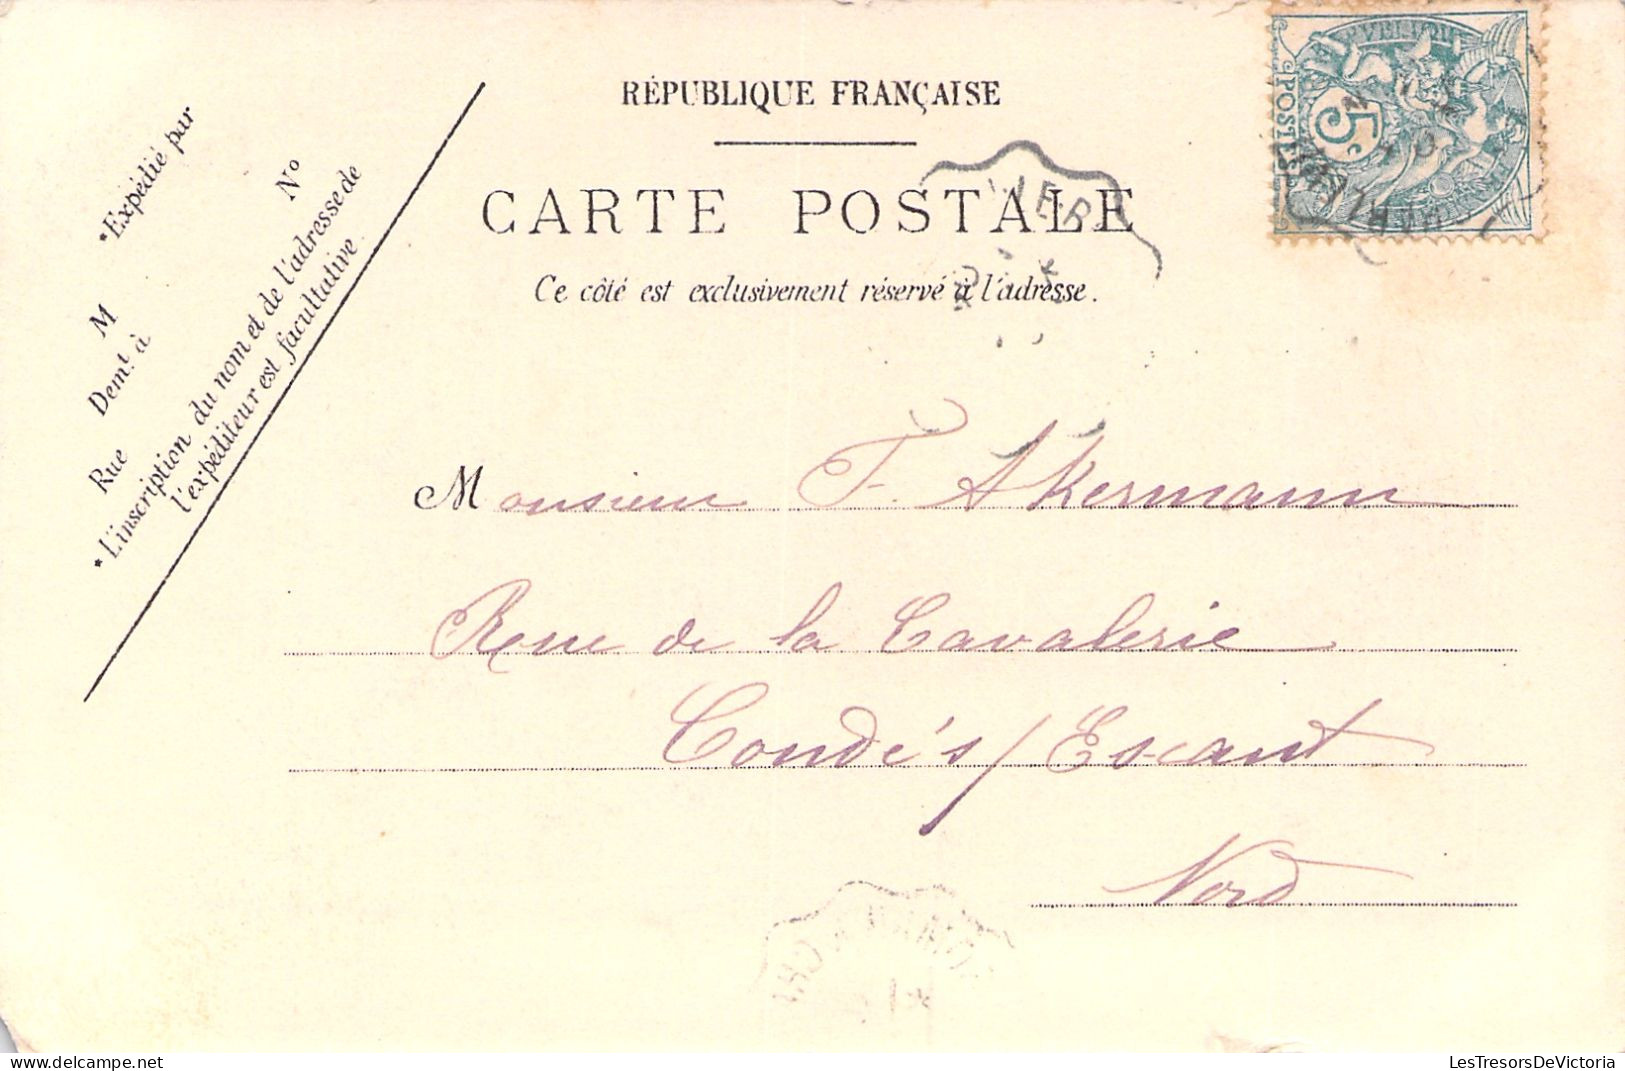 RÉPUBLIQUE FRANÇAISE
CARTE POSTALE
Ce côté est exclusivement réservé à l'adresse.
*Expédié par
M
Demt à
Rue
N°
*L'inscription du nom et de l'adresse de
l'expéditeur est facultative.
POSTES
5c
Monsieur F. Akermann
Rue de la Cavalerie
Condé s/ Escaut
Nord
LesTresorsDeVictoria